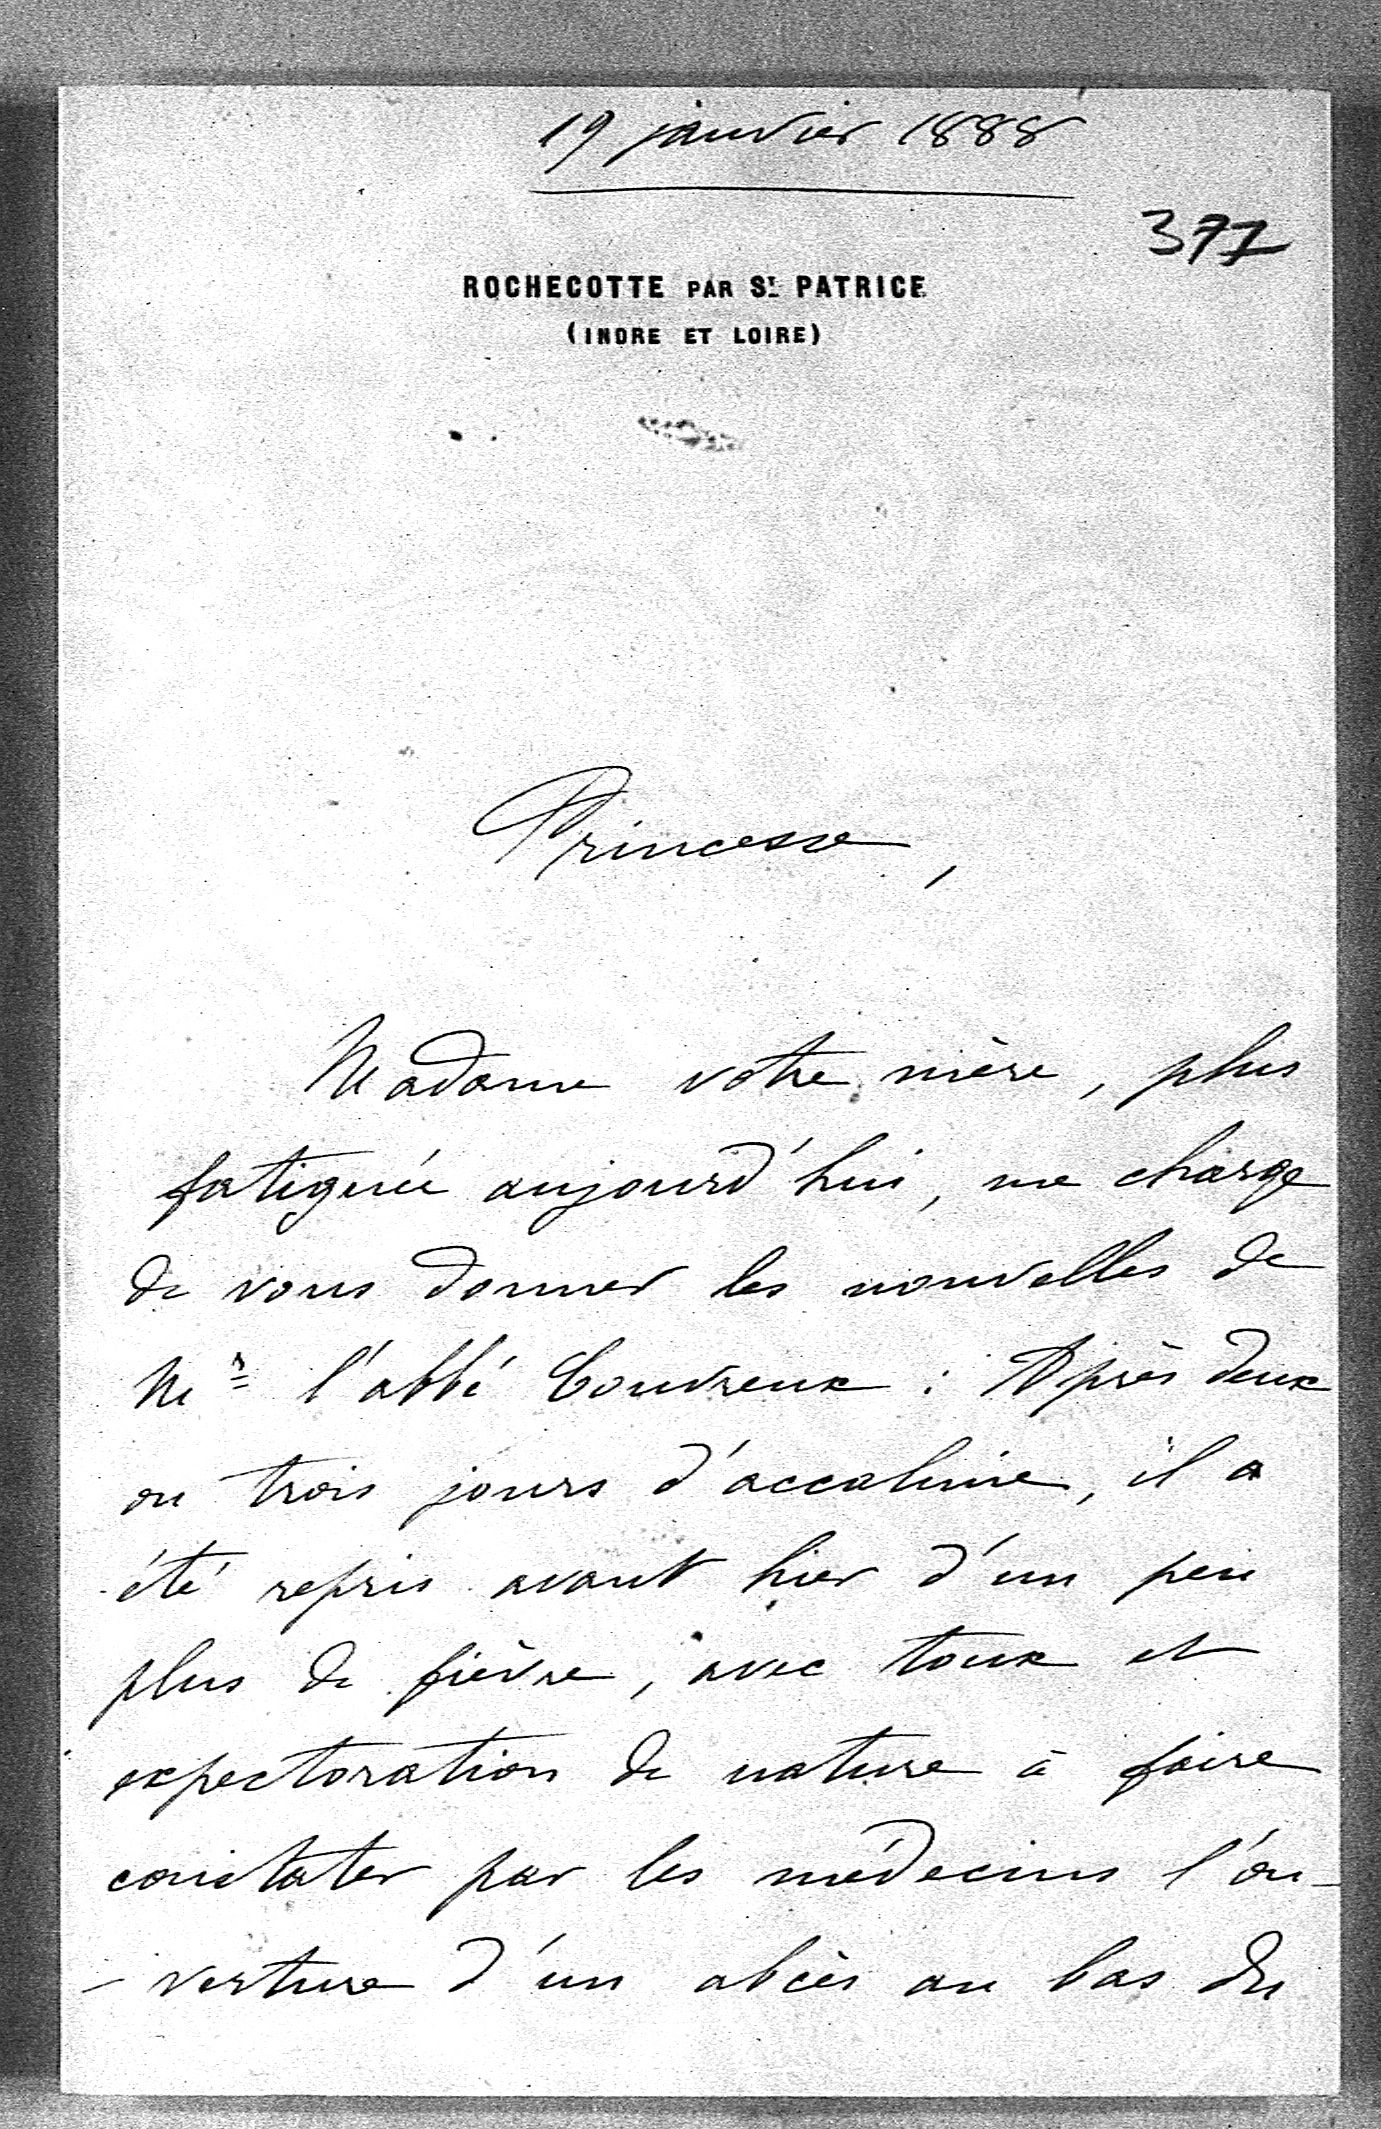 19 janvier 1888
377
ROCHECOTTE PAR ST PATRICE
(INDRE ET LOIRE)
Princesse,
Madame votre mère, plus
fatiguée aujourd'hui, me charge
de vous donner les nouvelles de
Mr l'abbé Couvreux : Après deux
ou trois jours d'accalmie, il a
été repris avant hier d'un peu
plus de fièvre, avec toux et
expectoration de nature à faire
constater par les médecins l'ou-
-verture d'un abcès au bas du